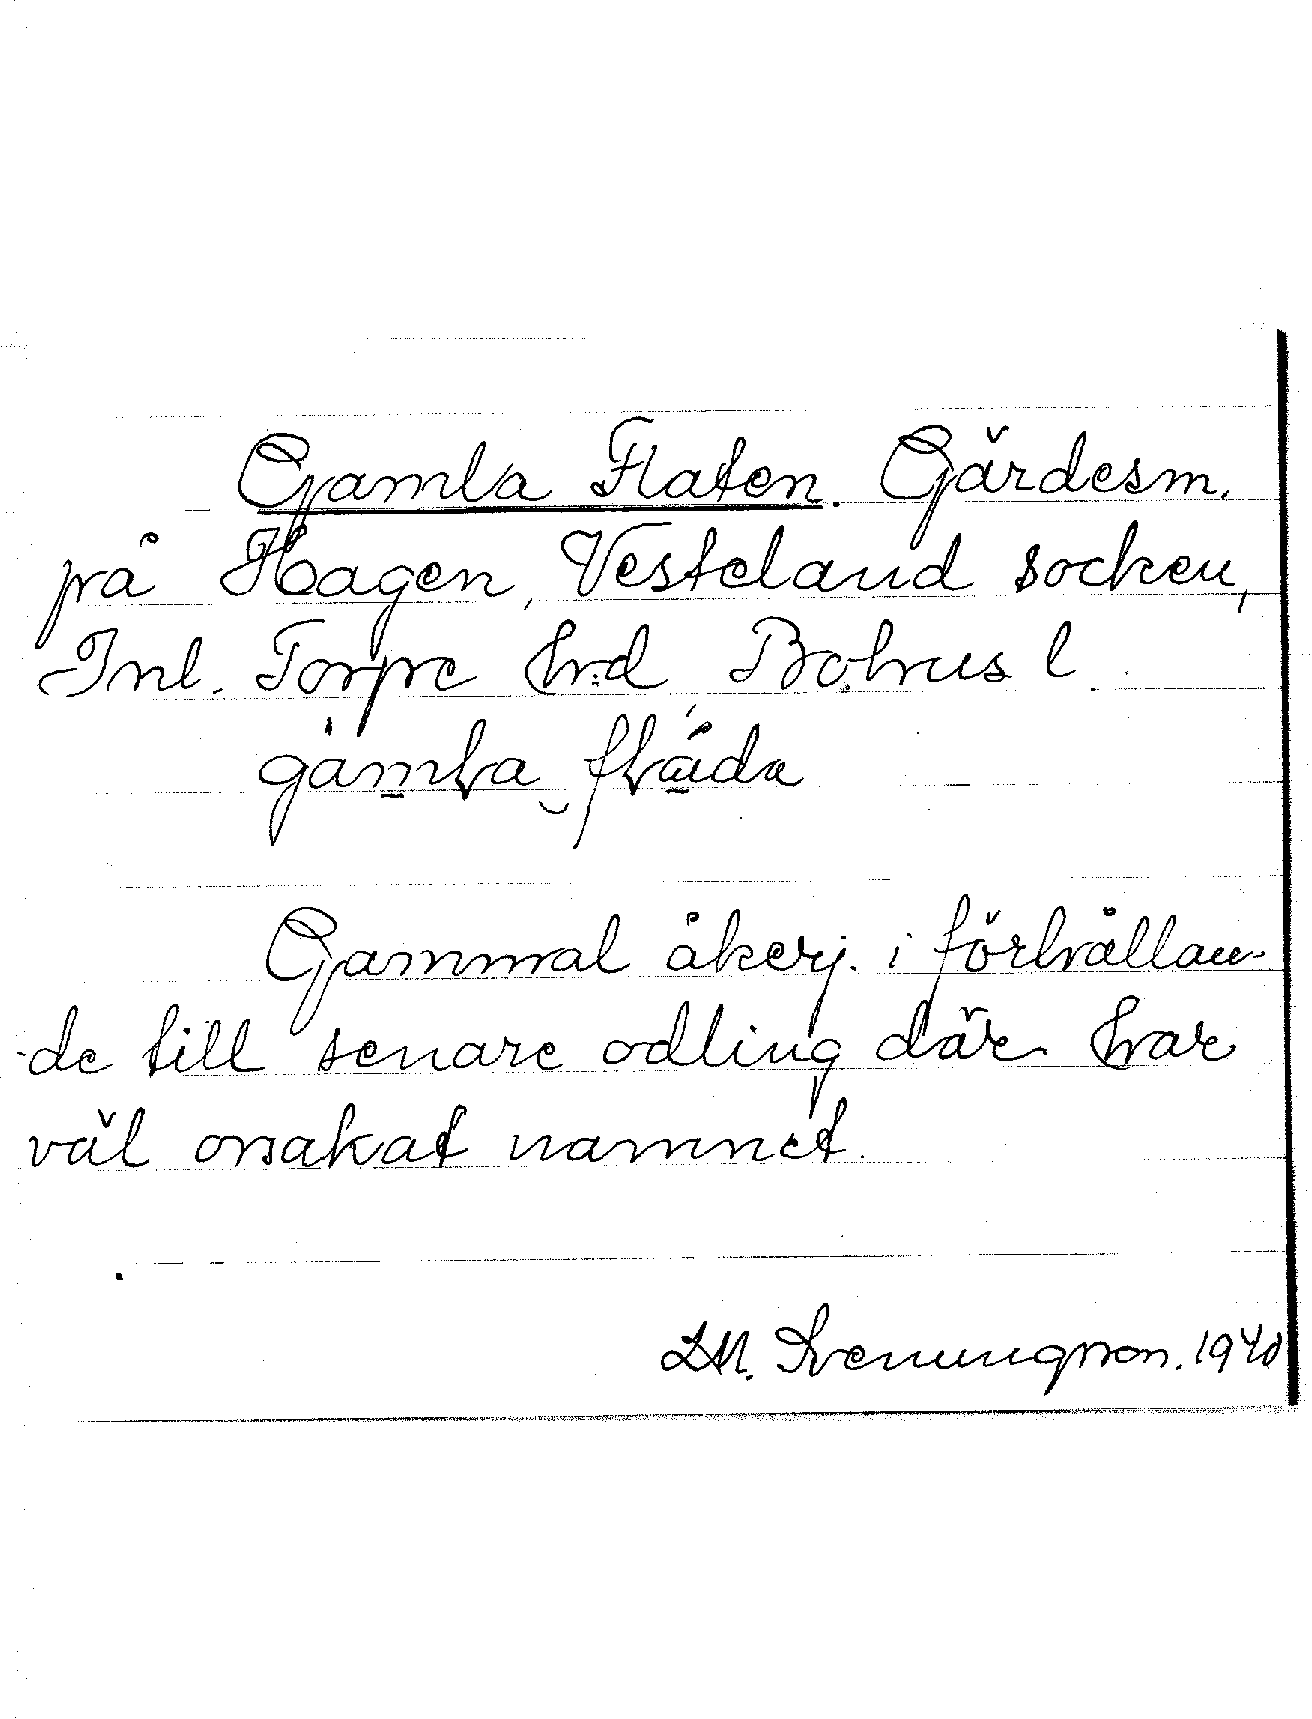 Gamla Flaten. Gärdesm.
på Hagen, Vesteland socken,
Inl. Torpe hrd, Bohus l.
gamla flada
Gammal åkerj. i förhållan-
de till senare odling där har
väl orsakat namnet.
LM. Svenungsson. 1940